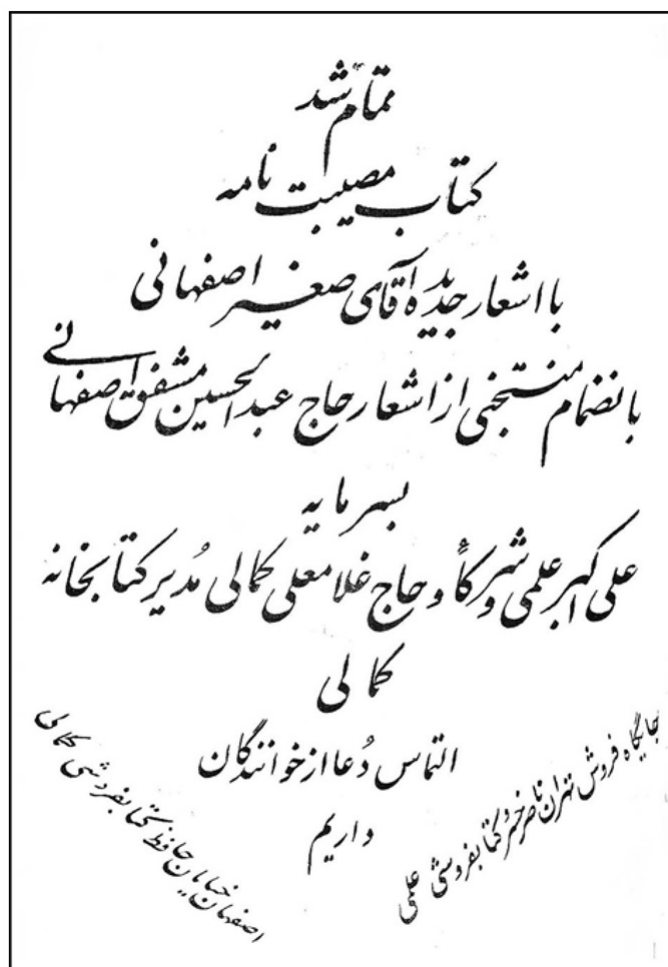 تمام شد
کتاب مصیبت نامه
با اشعار جدید آقای صغیر اصفهانی
بانضمام منتخبی از اشعار حاج عبدالحسین مشفق اصفهانی
بسرمایه
علی اکبر علمی و شرکاء و حاج غلامعلی کمالی مُدیر کتابخانه
کمالی
التماس دُعا از خوانندگان
داریم
جایگاه فروش تهران ناصر خسرو کتابفروشی علمی
اصفهان خیابان حافظ کتابفروشی کمالی